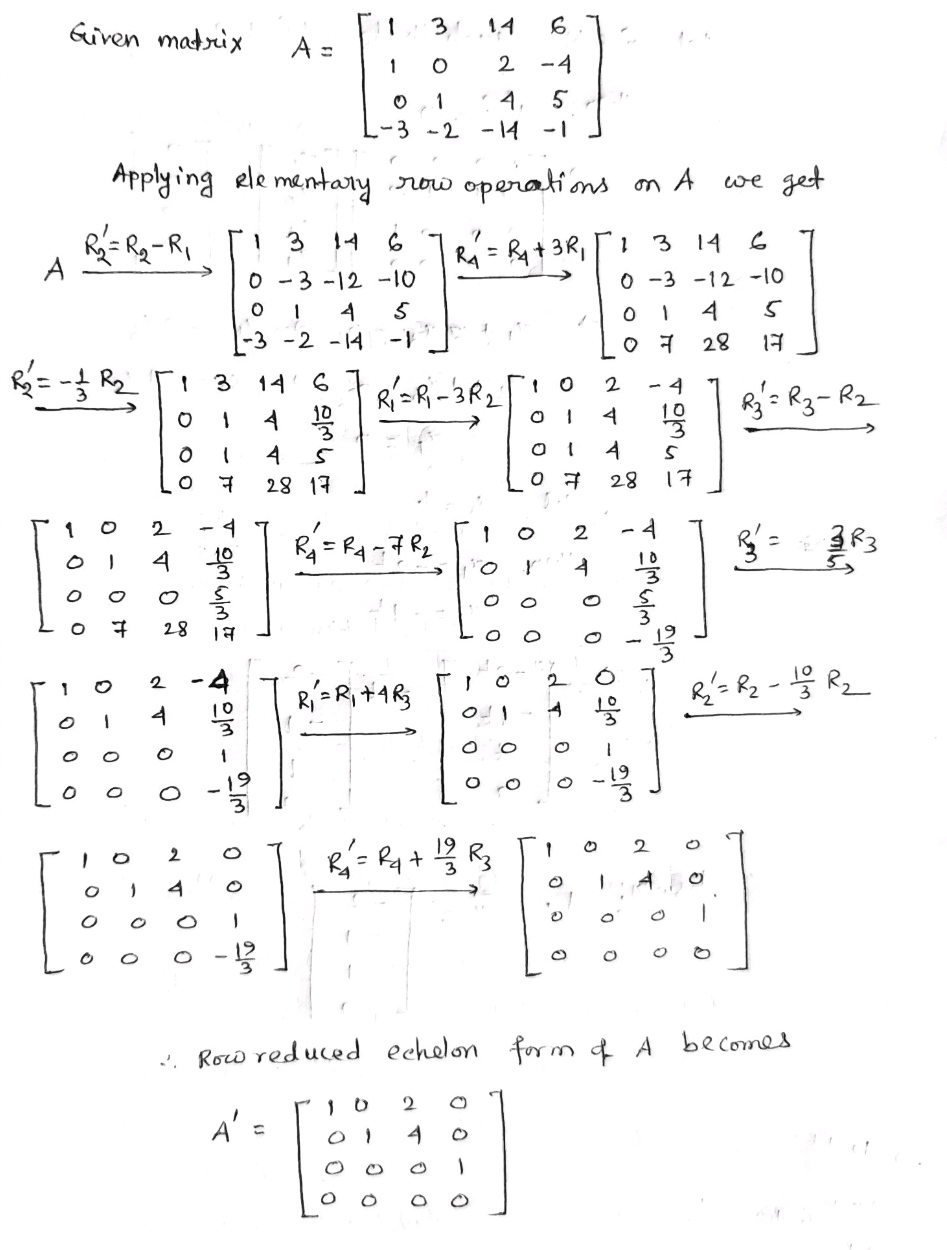 Given matrix A = [ 1 3 14 6
1 0 2 -4
0 1 4 5
-3 -2 -14 -1 ]
Applying elementary row operations on A we get
A R₂′ = R₂ - R₁ → [ 1 3 14 6 ; 0 -3 -12 -10 ; 0 1 4 5 ; -3 -2 -14 -1 ] R₄′ = R₄ + 3R₁ → [ 1 3 14 6 ; 0 -3 -12 -10 ; 0 1 4 5 ; 0 7 28 17 ]
R₂′ = -1/3 R₂ → [ 1 3 14 6 ; 0 1 4 10/3 ; 0 1 4 5 ; 0 7 28 17 ] R₁′ = R₁ - 3R₂ → [ 1 0 2 -4 ; 0 1 4 10/3 ; 0 1 4 5 ; 0 7 28 17 ] R₃′ = R₃ - R₂ →
[ 1 0 2 -4 ; 0 1 4 10/3 ; 0 0 0 5/3 ; 0 7 28 17 ] R₄′ = R₄ - 7R₂ → [ 1 0 2 -4 ; 0 1 4 10/3 ; 0 0 0 5/3 ; 0 0 0 -19/3 ] R₃′ = 3/5 R₃ →
[ 1 0 2 -4 ; 0 1 4 10/3 ; 0 0 0 1 ; 0 0 0 -19/3 ] R₁′ = R₁ + 4R₃ → [ 1 0 2 0 ; 0 1 4 10/3 ; 0 0 0 1 ; 0 0 0 -19/3 ] R₂′ = R₂ - 10/3 R₂ →
[ 1 0 2 0 ; 0 1 4 0 ; 0 0 0 1 ; 0 0 0 -19/3 ] R₄′ = R₄ + 19/3 R₃ → [ 1 0 2 0 ; 0 1 4 0 ; 0 0 0 1 ; 0 0 0 0 ]
∴ Row reduced echelon form of A becomes
A′ = [ 1 0 2 0
0 1 4 0
0 0 0 1
0 0 0 0 ]